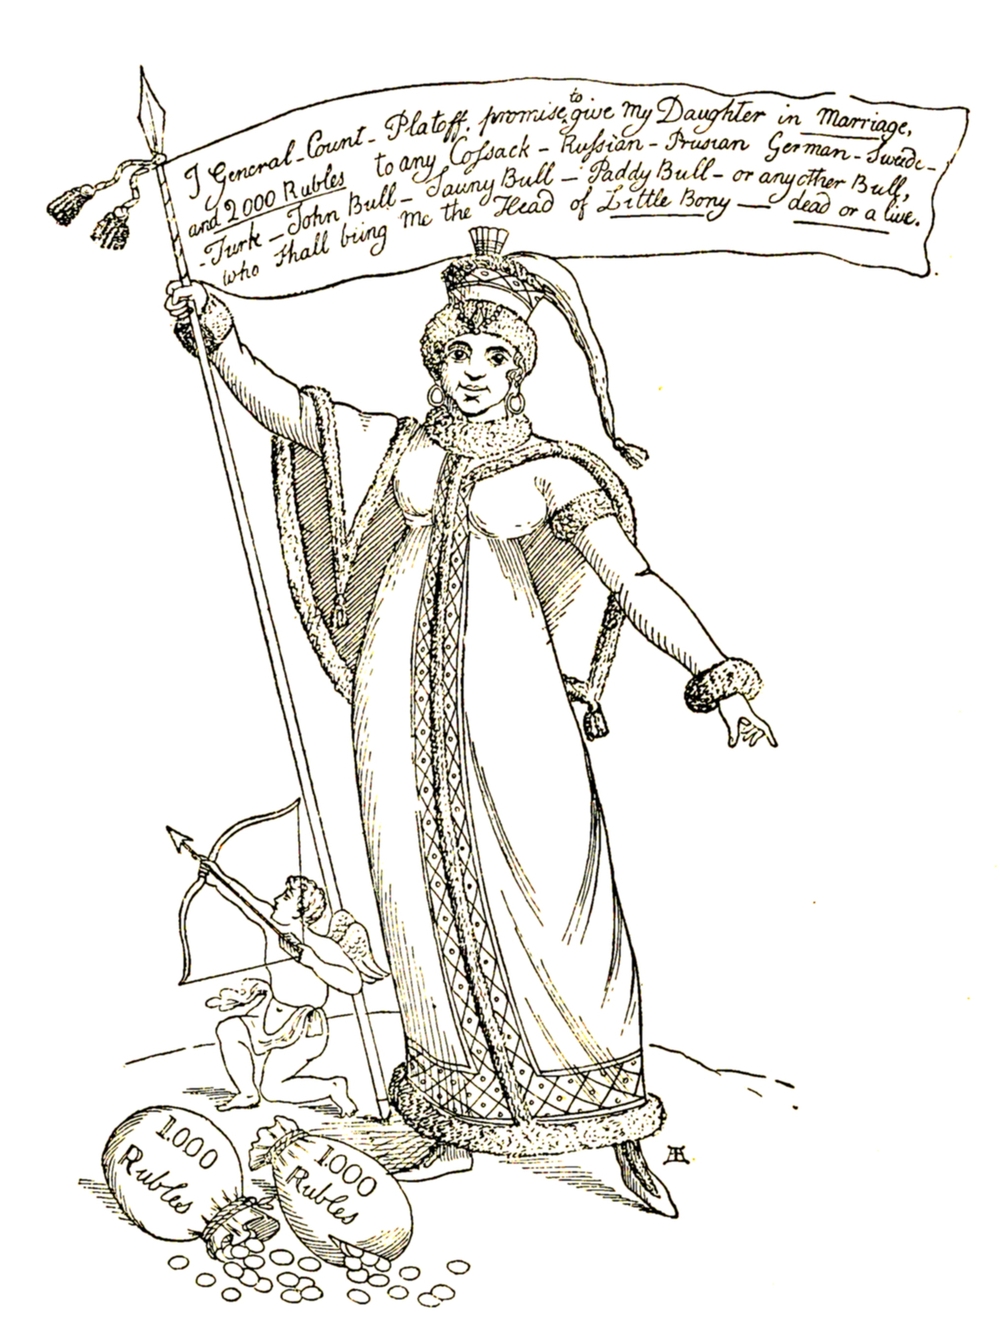 I General-Count-Platoff. promise, to give My Daughter in Marriage,
and 2000 Rubles to any Cossack - Russian - Prusian German - Swede -
- Turk - John Bull - Sauny Bull - Paddy Bull - or any other Bull,
who shall bring Me the Head of Little Bony — dead or a live.
1000
Rubles
1000
Rubles